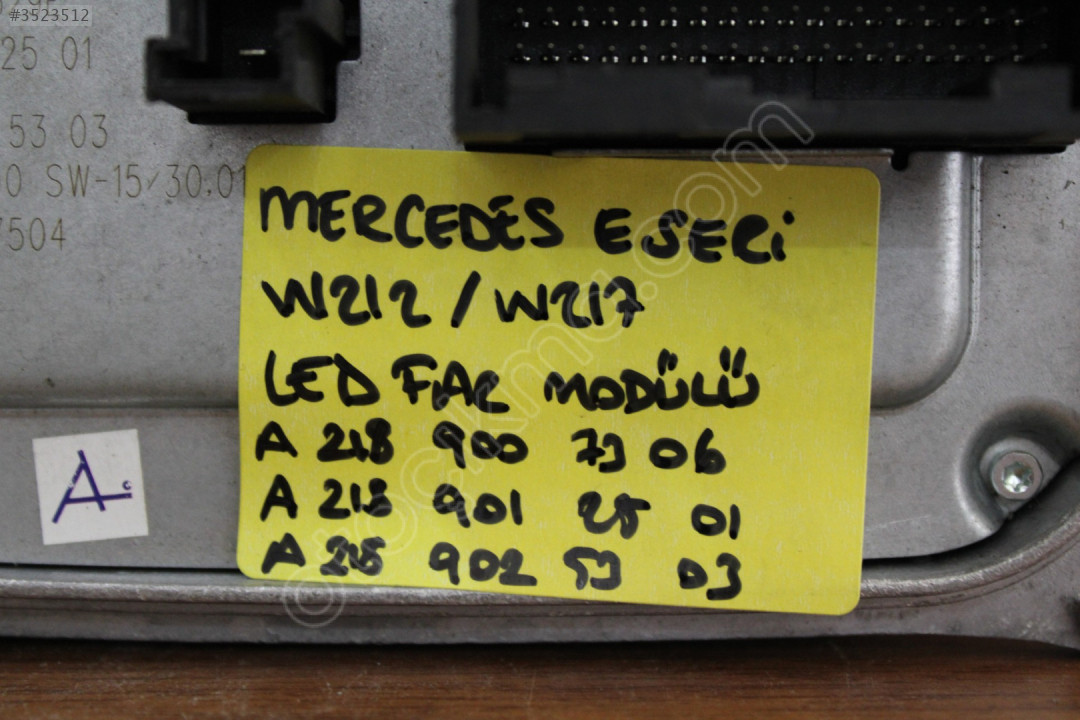 #3523512
25 01
53 03
0 SW-15/30.01
7504
MERCEDES E SERİ
W212 / W217
LED FAR MODÜLÜ
A 218 900 73 06
A 218 901 25 01
A 218 902 53 03
A
otocikma.com